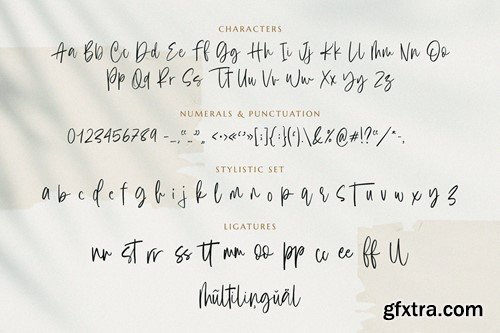 CHARACTERS
Aa Bb Cc Dd Ee Ff Gg Hh Ii Jj Kk Ll Mm Nn Oo
Pp Qq Rr Ss Tt Uu Vv Ww Xx Yy Zz
NUMERALS & PUNCTUATION
0123456789 -_,“”„ <·>«‹›»[;]{:}(‘).\&%@#!?“/*-,
STYLISTIC SET
a b c d e f g h i j k l m n o p q r s t u v w x y z
LIGATURES
nn st rr ss tt mm oo pp cc ee ff ll
Multilingual
gfxtra.com